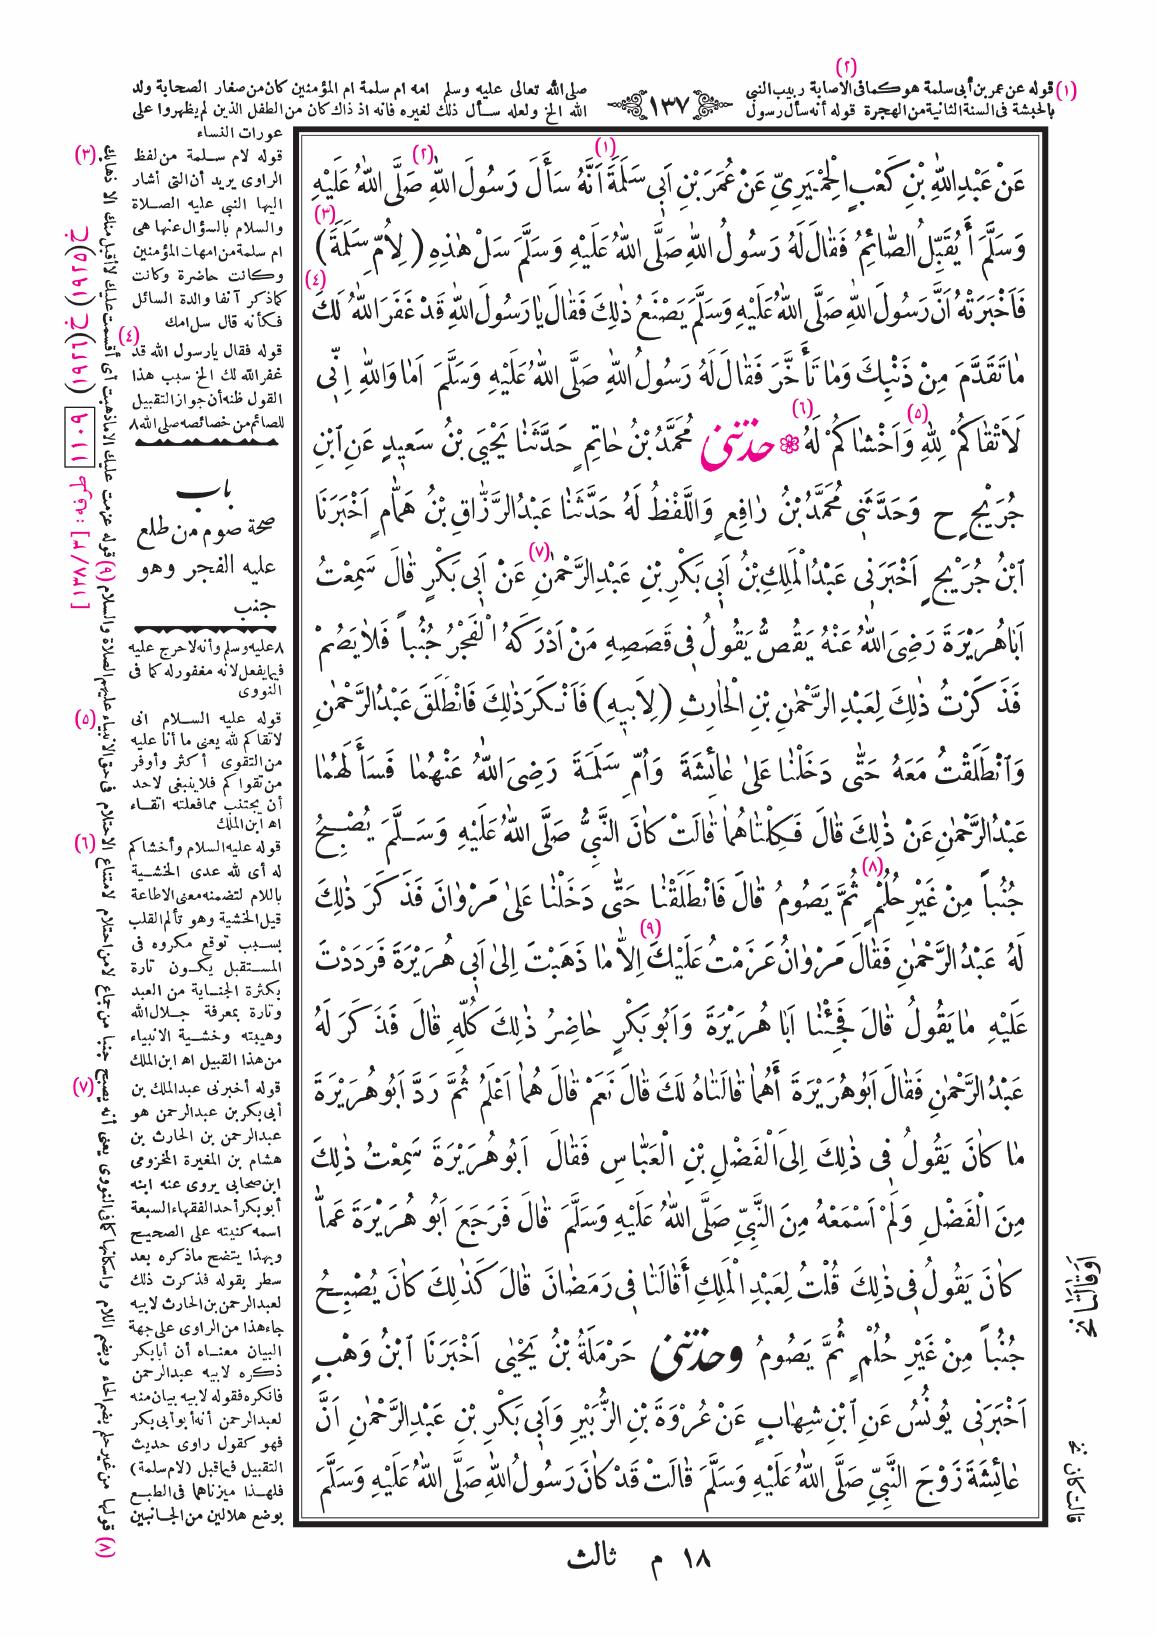 (٢)
(١) قوله عن عمر بن أبى سلمة هو كما فى الاصابة ربيب النبى
صلى الله تعالى عليه وسلم امه ام سلمة ام المؤمنين كان من صغار الصحابة ولد
بالحبشة فى السنة الثانية من الهجرة قوله أنه سأل رسول
﴿١٣٧﴾
الله الخ ولعله سأل ذلك لغيره فانه اذ ذاك كان من الطفل الذين لم يظهروا على
عورات النساء
عَنْ عَبْدِ اللهِ بْنِ كَعْبٍ الْحِمْيَرِىِّ عَنْ عُمَرَ بْنِ اَبى سَلَمَةَ (١) اَنَّهُ سَأَلَ رَسُولَ اللهِ (٢) صَلَّى اللهُ عَلَيْهِ
وَسَلَّمَ أَيُقَبِّلُ الصَّائِمُ فَقَالَ لَهُ رَسُولُ اللهِ صَلَّى اللهُ عَلَيْهِ وَسَلَّمَ سَلْ هٰذِهِ (لِاُمِّ سَلَمَةَ) (٣)
فَاَخْبَرَتْهُ اَنَّ رَسُولَ اللهِ صَلَّى اللهُ عَلَيْهِ وَسَلَّمَ يَصْنَعُ ذٰلِكَ فَقَالَ يَا رَسُولَ اللهِ قَدْ غَفَرَ اللهُ لَكَ (٤)
مَا تَقَدَّمَ مِنْ ذَنْبِكَ وَمَا تَأَخَّرَ فَقَالَ لَهُ رَسُولُ اللهِ صَلَّى اللهُ عَلَيْهِ وَسَلَّمَ اَمَا وَاللهِ اِنِّى
لَاَتْقَاكُمْ لِلّٰهِ (٥) وَاَخْشَاكُمْ لَهُ (٦) حَدَّثَنِى مُحَمَّدُ بْنُ حَاتِمٍ حَدَّثَنَا يَحْيَى بْنُ سَعِيدٍ عَنِ ابْنِ
جُرَيْجٍ ح وَحَدَّثَنِى مُحَمَّدُ بْنُ رَافِعٍ وَاللَّفْظُ لَهُ حَدَّثَنَا عَبْدُ الرَّزَّاقِ بْنُ هَمَّامٍ اَخْبَرَنَا
ابْنُ جُرَيْجٍ اَخْبَرَنِى عَبْدُ الْمَلِكِ بْنُ اَبِى بَكْرِ بْنِ عَبْدِ الرَّحْمٰنِ (٧) عَنْ اَبِى بَكْرٍ قَالَ سَمِعْتُ
اَبَا هُرَيْرَةَ رَضِىَ اللهُ عَنْهُ يَقُصُّ يَقُولُ فِى قَصَصِهِ مَنْ اَدْرَكَهُ الْفَجْرُ جُنُباً فَلَا يَصُمْ
فَذَكَرْتُ ذٰلِكَ لِعَبْدِ الرَّحْمٰنِ بْنِ الْحَارِثِ (لِاَبِيهِ) فَاَنْكَرَ ذٰلِكَ فَانْطَلَقَ عَبْدُ الرَّحْمٰنِ
وَانْطَلَقْتُ مَعَهُ حَتّٰى دَخَلْنَا عَلىٰ عَائِشَةَ وَاُمِّ سَلَمَةَ رَضِىَ اللهُ عَنْهُمَا فَسَأَلَهُمَا
عَبْدُ الرَّحْمٰنِ عَنْ ذٰلِكَ قَالَ فَكِلْتَاهُمَا قَالَتْ كَانَ النَّبِىُّ صَلَّى اللهُ عَلَيْهِ وَسَلَّمَ يُصْبِحُ
جُنُباً مِنْ غَيْرِ حُلُمٍ (٨) ثُمَّ يَصُومُ قَالَ فَانْطَلَقْنَا حَتّٰى دَخَلْنَا عَلىٰ مَرْوَانَ فَذَكَرَ ذٰلِكَ
لَهُ عَبْدُ الرَّحْمٰنِ فَقَالَ مَرْوَانُ عَزَمْتُ عَلَيْكَ (٩) اِلَّا مَا ذَهَبْتَ اِلىٰ اَبِى هُرَيْرَةَ فَرَدَدْتَ
عَلَيْهِ مَا يَقُولُ قَالَ فَجِئْنَا اَبَا هُرَيْرَةَ وَاَبُو بَكْرٍ حَاضِرُ ذٰلِكَ كُلِّهِ قَالَ فَذَكَرَ لَهُ
عَبْدُ الرَّحْمٰنِ فَقَالَ اَبُو هُرَيْرَةَ أَهُمَا قَالَتَاهُ لَكَ قَالَ نَعَمْ قَالَ هُمَا اَعْلَمُ ثُمَّ رَدَّ اَبُو هُرَيْرَةَ
مَا كَانَ يَقُولُ فِى ذٰلِكَ اِلَى الْفَضْلِ بْنِ الْعَبَّاسِ فَقَالَ اَبُو هُرَيْرَةَ سَمِعْتُ ذٰلِكَ
مِنَ الْفَضْلِ وَلَمْ اَسْمَعْهُ مِنَ النَّبِىِّ صَلَّى اللهُ عَلَيْهِ وَسَلَّمَ قَالَ فَرَجَعَ اَبُو هُرَيْرَةَ عَمَّا
كَانَ يَقُولُ فِى ذٰلِكَ قُلْتُ لِعَبْدِ الْمَلِكِ أَقَالَتَا فِى رَمَضَانَ قَالَ كَذٰلِكَ كَانَ يُصْبِحُ
جُنُباً مِنْ غَيْرِ حُلُمٍ ثُمَّ يَصُومُ وحَدَّثَنِى حَرْمَلَةُ بْنُ يَحْيىٰ اَخْبَرَنَا ابْنُ وَهْبٍ
اَخْبَرَنِى يُونُسُ عَنِ ابْنِ شِهَابٍ عَنْ عُرْوَةَ بْنِ الزُّبَيْرِ وَاَبِى بَكْرِ بْنِ عَبْدِ الرَّحْمٰنِ اَنَّ
عَائِشَةَ زَوْجَ النَّبِىِّ صَلَّى اللهُ عَلَيْهِ وَسَلَّمَ قَالَتْ قَدْ كَانَ رَسُولُ اللهِ صَلَّى اللهُ عَلَيْهِ وَسَلَّمَ
(٣) قوله لام سلمة من لفظ
الراوى يريد أن التى أشار
اليها النبى عليه الصلاة
والسلام بالسؤال عنها هى
ام سلمة من امهات المؤمنين
وكانت حاضرة وكانت
كما ذكر آنفا والدة السائل
فكأنه قال سل امك
(٤) قوله فقال يارسول الله قد
غفرالله لك الخ سبب هذا
القول ظنه أن جواز التقبيل
للصائم من خصائصه صلى الله ٨
باب
صحة صوم من طلع
عليه الفجر وهو
جنب
٨ عليه وسلم وأنه لاحرج عليه
فيما يفعل لانه مغفور له كما فى
النووى
(٥) قوله عليه السلام انى
لاتقاكم لله يعنى ما أنا عليه
من التقوى أكثر وأوفر
من تقواكم فلاينبغى لاحد
أن يجتنب مما فعلته اتقاء
اه ابن الملك
(٦) قوله عليه السلام وأخشاكم
له أى لله عدى الخشية
باللام لتضمنه معنى الاطاعة
قيل الخشية وهو تألم القلب
بسبب توقع مكروه فى
المستقبل يكون تارة
بكثرة الجناية من العبد
وتارة بمعرفة جلال الله
وهيبته وخشية الانبياء
من هذا القبيل اه ابن الملك
(٧) قوله أخبرنى عبدالملك بن
أبى بكر بن عبدالرحمن هو
عبدالرحمن بن الحارث بن
هشام بن المغيرة المخزومى
ابن صحابى يروى عنه ابنه
أبوبكر أحد الفقهاء السبعة
اسمه كنيته على الصحيح
وبهذا يتضح ماذكره بعد
سطر بقوله فذكرت ذلك
لعبدالرحمن بن الحارث لابيه
جاء هذا من الراوى على جهة
البيان معناه أن أبابكر
ذكره لابيه عبدالرحمن
فانكره فقوله لابيه بيان منه
لعبدالرحمن أنه أبو أبى بكر
فهو كقول راوى حديث
التقبيل فيما قبل (لام سلمة)
فلهذا ميزناهما فى الطبع
بوضع هلالين من الجانبين
(٨) قولها من غير حلم بضم الحاء وبضم اللام واسكانها كما فى النووى يعنى أنه يصبح جنبا من جماع لا من احتلام لامتناع الاحتلام فى حق الانبياء عليهم الصلاة والسلام (٩) قوله عزمت عليك الا ما ذهبت أى أقسمت عليك لا أقبل منك الا ذهابك
١١٠٩
أوقالتا نخ
قالت كان نخ
١٨ م ثالث